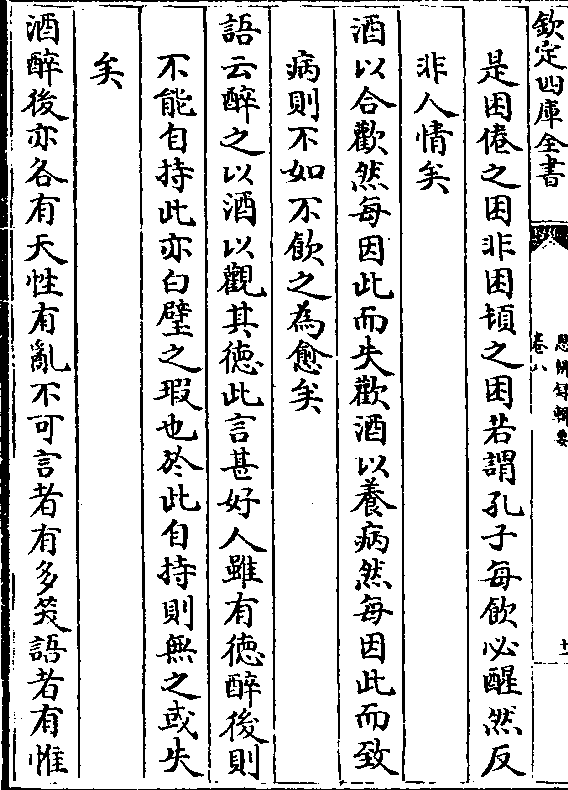 欽定四庫全書
思辨録輯要
卷八
是困倦之困非困頓之困若謂孔子每飲必醒然反
非人情矣
酒以合歡然每因此而失歡酒以養病然每因此而致
病則不如不飲之為愈矣
語云醉之以酒以觀其徳此言甚好人雖有徳醉後則
不能自持此亦白璧之瑕也於此自持則無之或失
矣
酒醉後亦各有天性有亂不可言者有多笑語者有惟